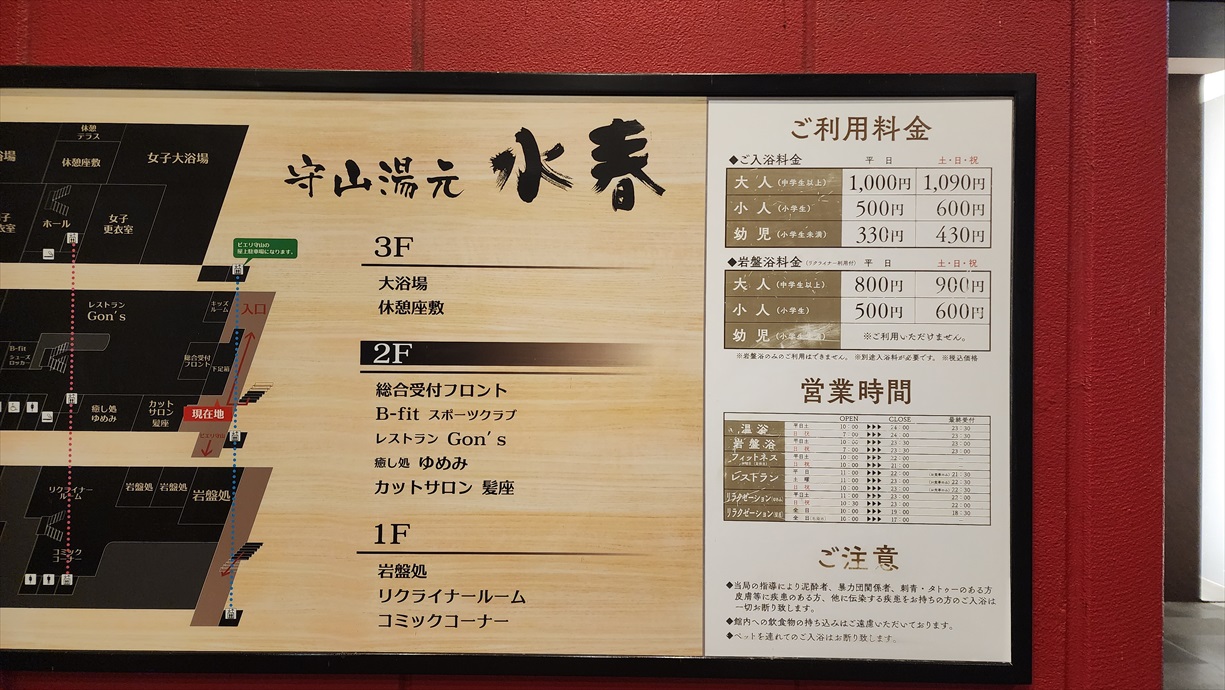 休憩
テラス
浴場
休憩座敷
女子大浴場
ホール
女子
更衣室
ピエリ守山の
屋上駐車場になります。
レストラン
Gon's
キッズ
ルーム
入口
B-fit
シューズ
ロッカー
総合受付
フロント
下足箱
癒し処
ゆめみ
カット
サロン
髪座
現在地
リクライナー
ルーム
岩盤処
岩盤処
岩盤処
コミック
コーナー
守山湯元 水春
3F
大浴場
休憩座敷
2F
総合受付フロント
B-fit スポーツクラブ
レストラン Gon's
癒し処 ゆめみ
カットサロン 髪座
1F
岩盤処
リクライナールーム
コミックコーナー
ご利用料金
◆ご入浴料金 平 日 土・日・祝
大 人 (中学生以上) 1,000円 1,090円
小 人 (小学生) 500円 600円
幼 児 (小学生未満) 330円 430円
◆岩盤浴料金 (リクライナー利用付) 平 日 土・日・祝
大 人 (中学生以上) 800円 900円
小 人 (小学生) 500円 600円
幼 児 (小学生未満) ※ご利用いただけません。
※岩盤浴のみのご利用はできません。 ※別途入浴料が必要です。 ※税込価格
営業時間
OPEN CLOSE 最終受付
温 浴 平日土 10:00 ▶▶▶ 24:00 23:30
日 祝 7:00 ▶▶▶ 24:00 23:30
岩 盤 浴 平日土 10:00 ▶▶▶ 23:30 23:00
日 祝 7:00 ▶▶▶ 23:30 23:00
フィットネス 平日土 10:00 ▶▶▶ 22:00
日 祝 10:00 ▶▶▶ 21:00
レストラン 平 日 11:00 ▶▶▶ 22:00 21:30
土 曜 11:00 ▶▶▶ 23:00 22:30
日 祝 10:00 ▶▶▶ 23:00 22:30
リラクゼーション 平日土 11:00 ▶▶▶ 23:00 22:00
日 祝 10:30 ▶▶▶ 23:00 22:00
リラクゼーション 全 日 10:00 ▶▶▶ 19:00 18:30
全 日 10:00 ▶▶▶ 17:00
ご注意
◆当局の指導により泥酔者、暴力団関係者、刺青・タトゥーのある方
皮膚等に疾患のある方、他に伝染する疾患をお持ちの方のご入浴は
一切お断り致します。
◆館内への飲食物の持ち込みはご遠慮いただいております。
◆ペットを連れてのご入浴はお断り致します。